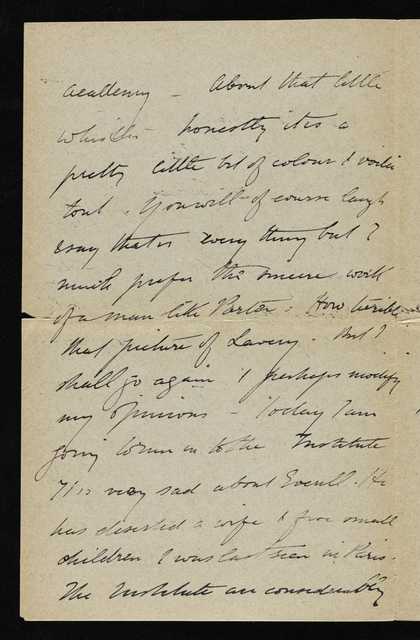 academy – About that little
Whistler honestly it is a
pretty little bit of colour & voila
tout. You will of course laugh
& say that is everything but I
much prefer the sincere work
of a man like Parton. How terrible
that picture of Lavery. But I
shall go again & perhaps modify
my opinions – Today I am
going down to the Institute
It is very sad about Everill. He
has deserted a wife & five small
children & was last seen in Paris.
The Institute are considerably